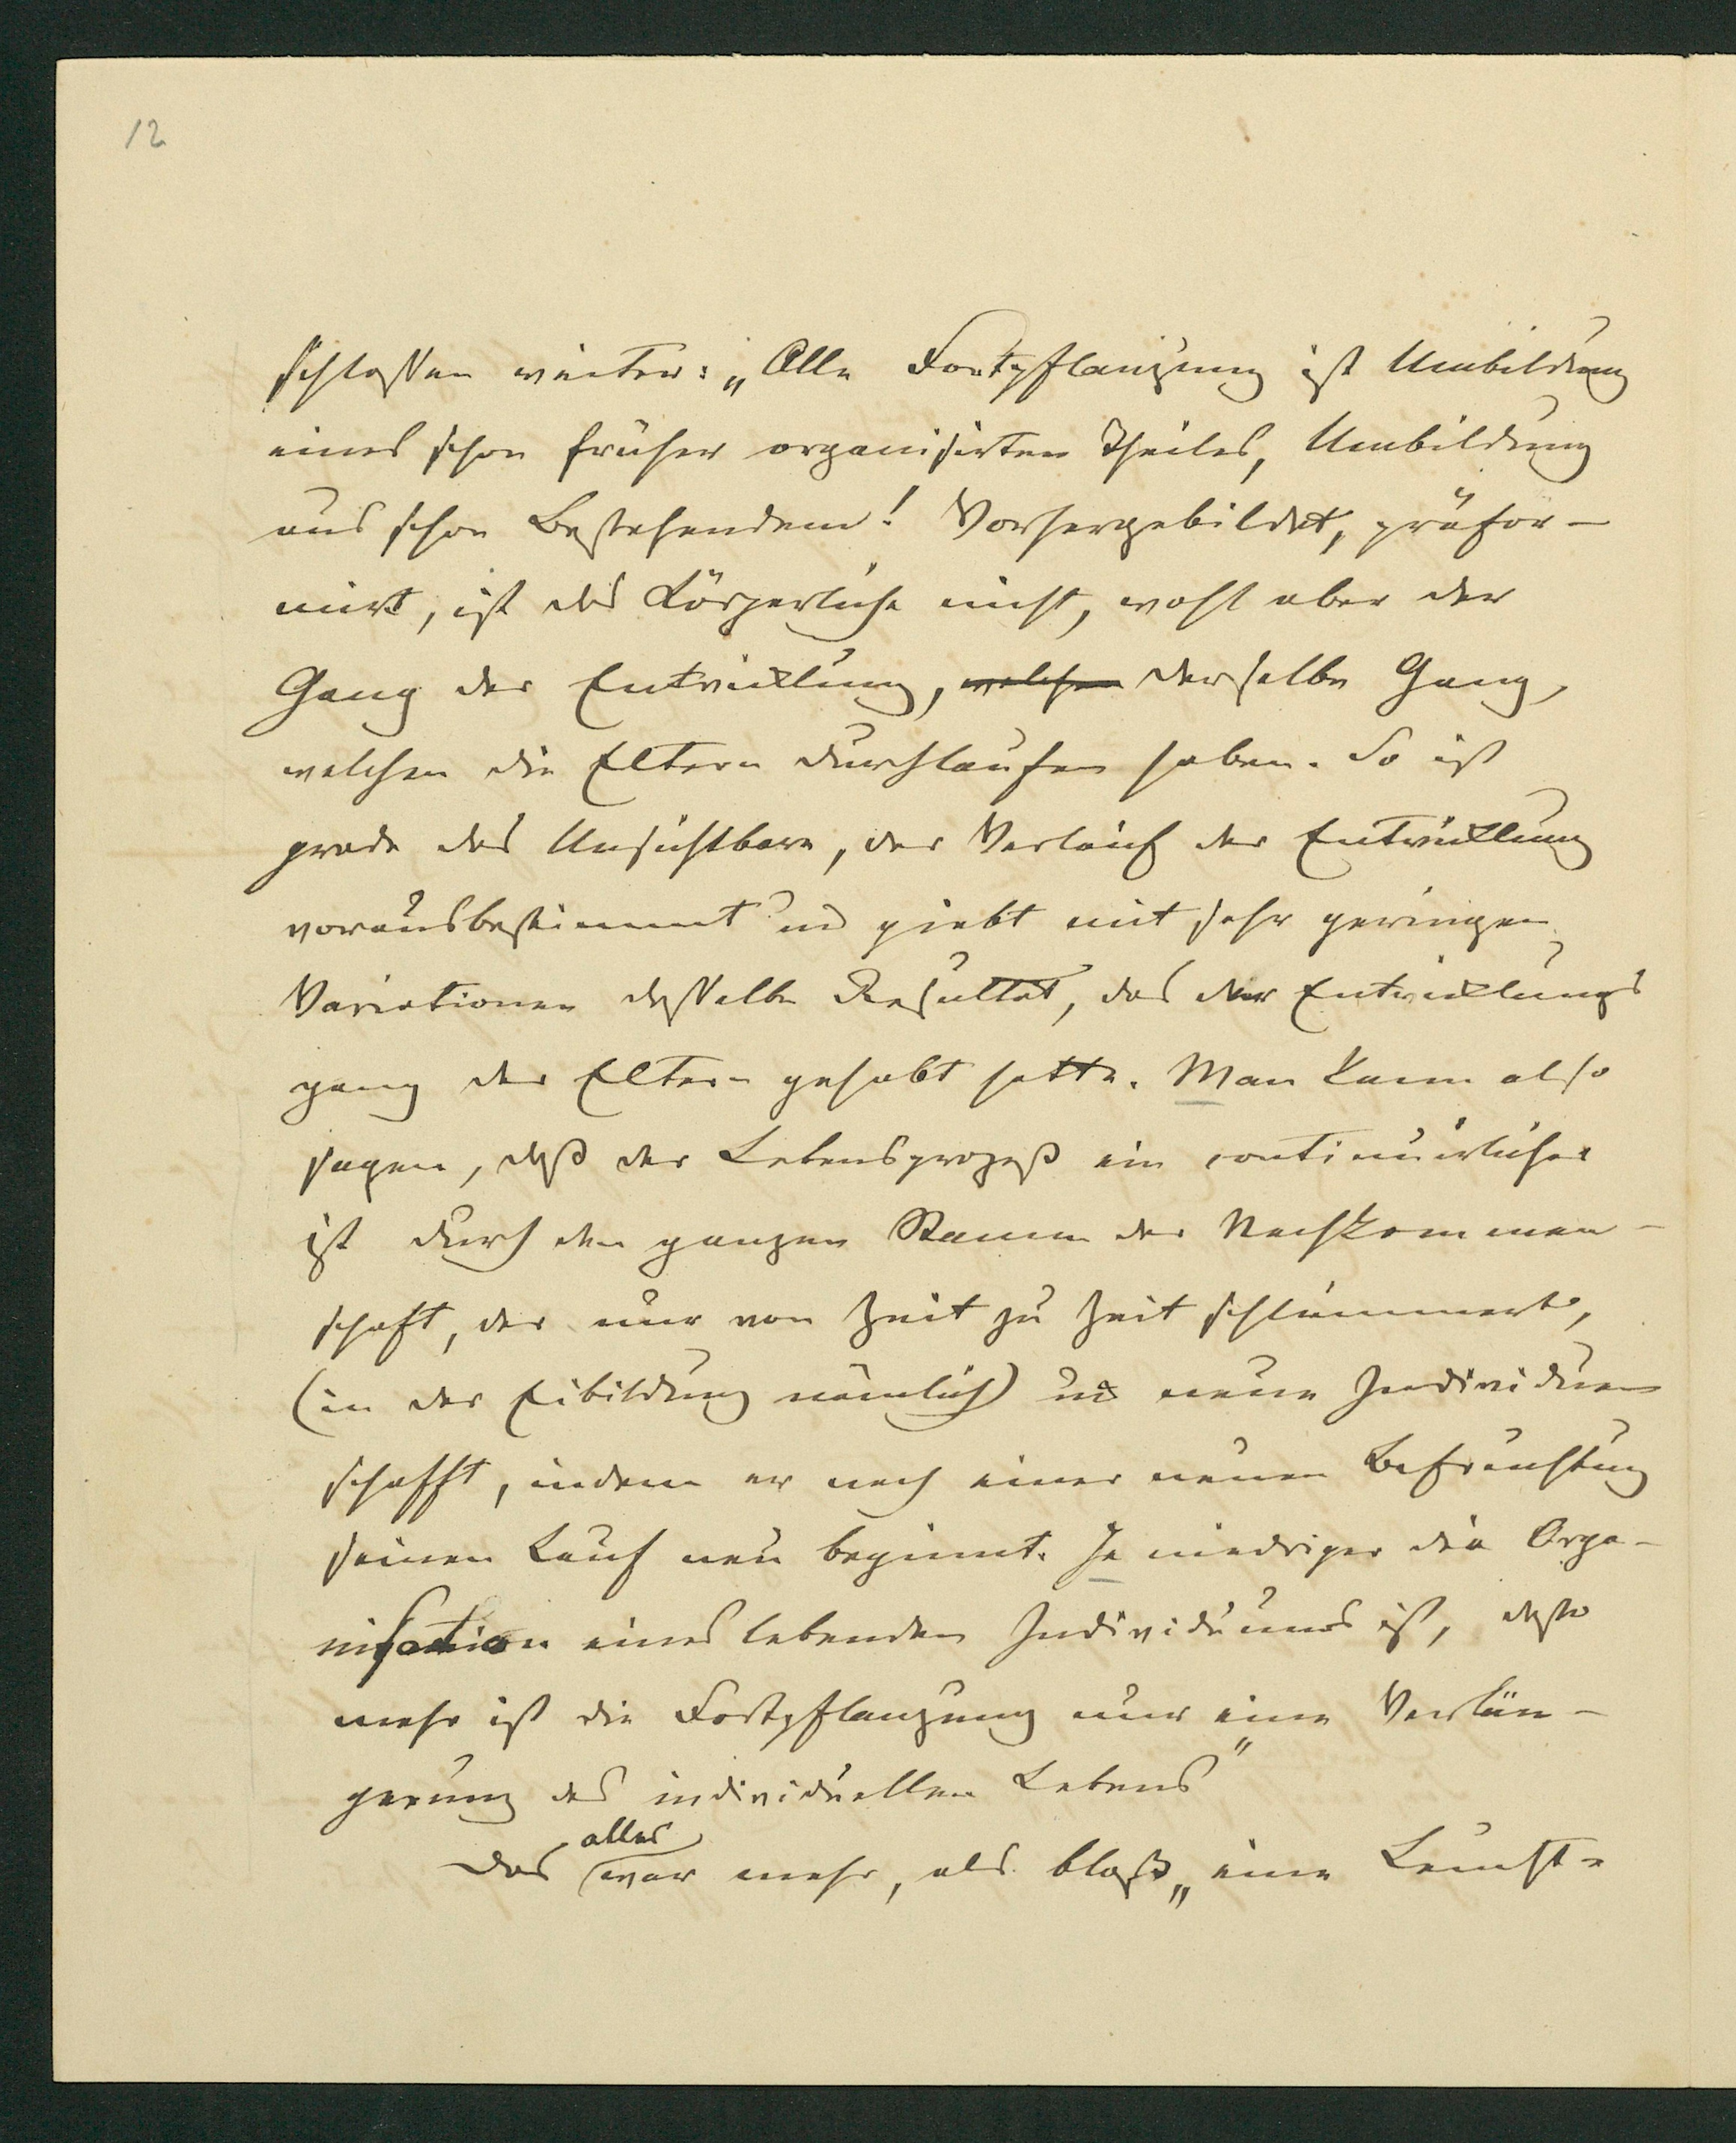 12
schlossen weiter: „Alle Fortpflanzung ist Umbildung
eines schon früher organisirten Theiles, Umbildung
aus schon Bestehendem! Vorhergebildet, präfor-
mirt, ist das Körperliche nicht, wohl aber der
Gang der Entwicklung, welchen derselbe Gang,
welchen die Eltern durchlaufen haben. So ist
grade das Unsichtbare, der Verlauf der Entwicklung
vorausbestimmt und giebt mit sehr geringen
Variationen dasselbe Resultat, das der Entwicklungs
gang der Eltern gehabt hatte. Man kann also
sagen, daß der Lebensprozeß ein continuirlicher
ist durch den ganzen Stamm der Nachkommen-
schaft, der nur von Zeit zu Zeit schlummert,
(in der Eibildung nämlich) und neue Individuen
schafft, indem er nach einer neuen Befruchtung
seinen Lauf neu beginnt. Je niedriger die Orga-
nisation eines lebenden Individuums ist, desto
mehr ist die Fortpflanzung nur eine Verlän-
gerung des individuellen Lebens"
alles
Das war mehr, als bloß „eine Leucht-